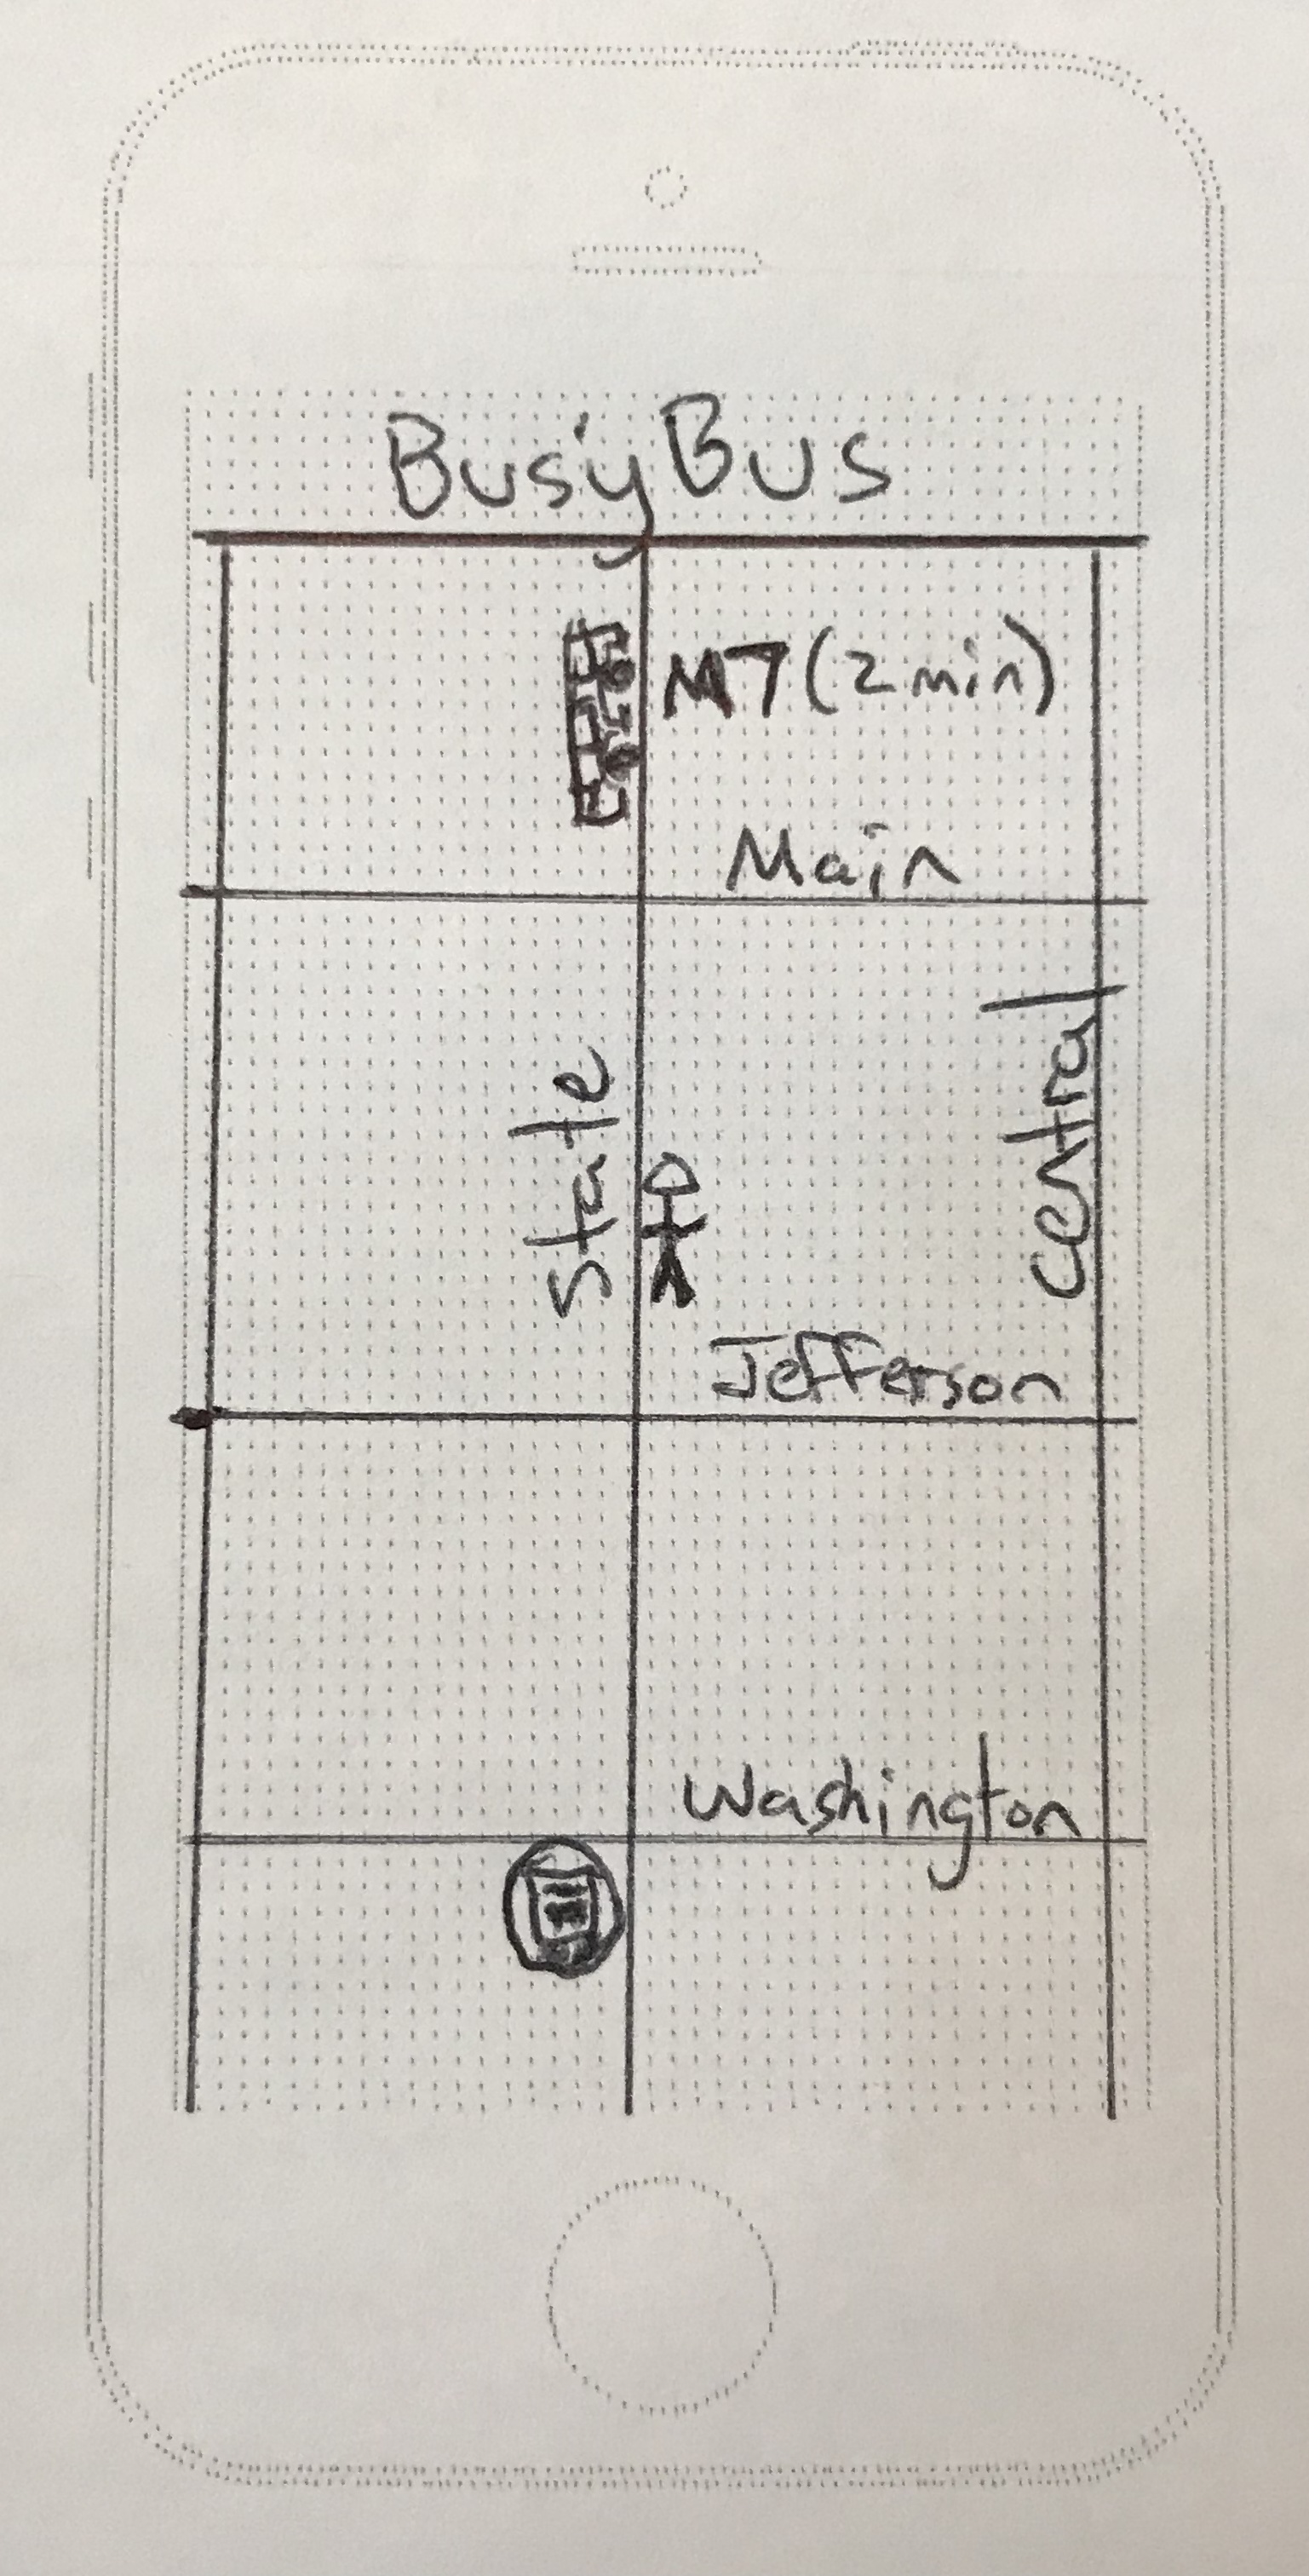 BusyBus
M7 (2min)
Main
State
Central
Jefferson
Washington